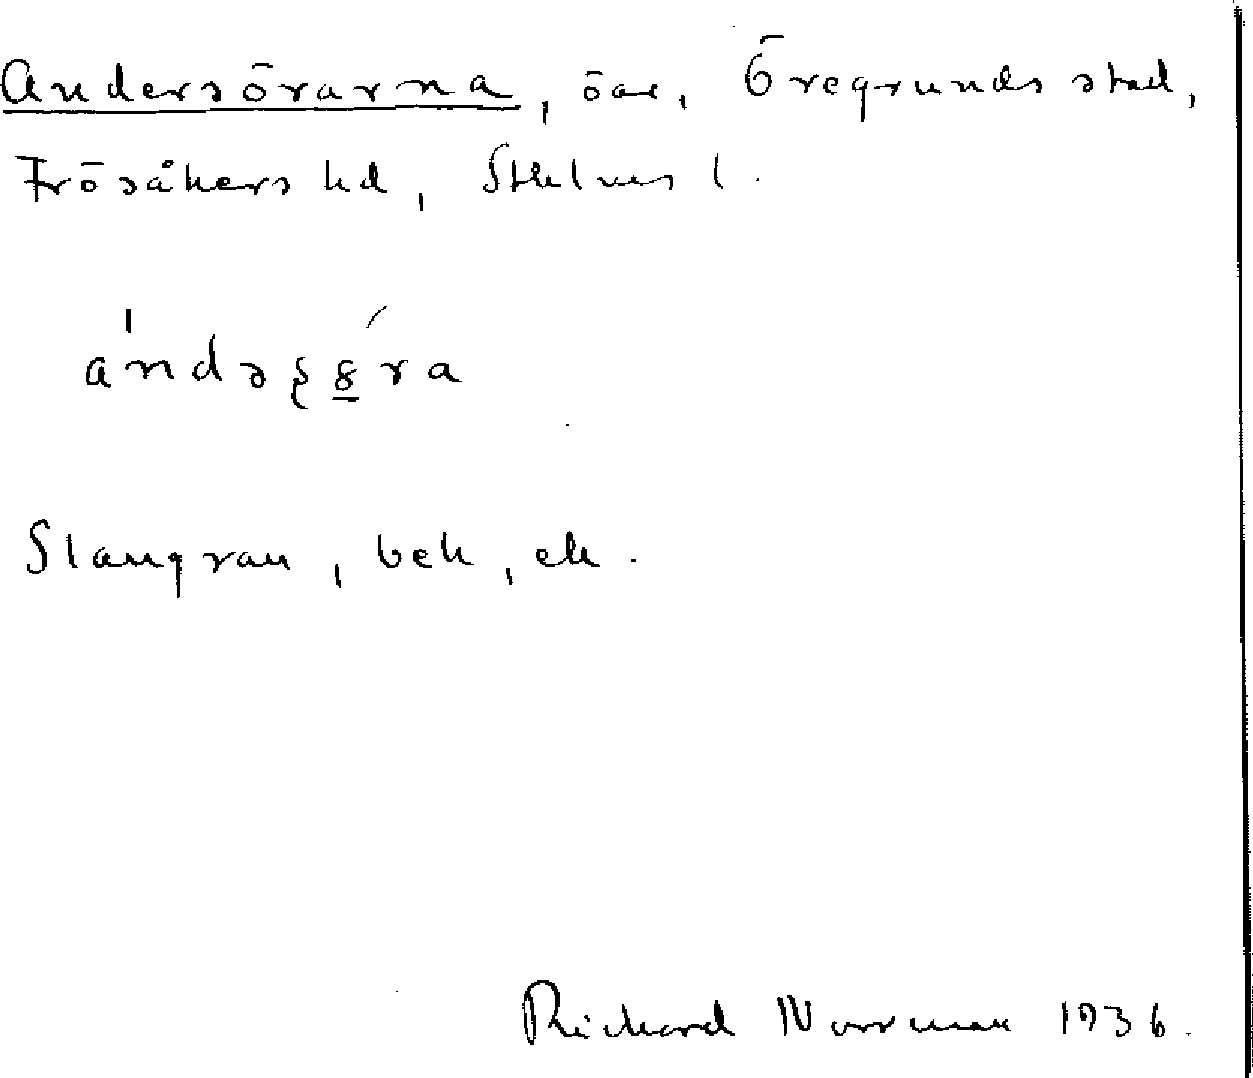 Andersörarna, öar, Öregrunds stad,
Frösåkers hd, Sthlms l.
Slangran, bek, ek.
Richard Norrman 1936.